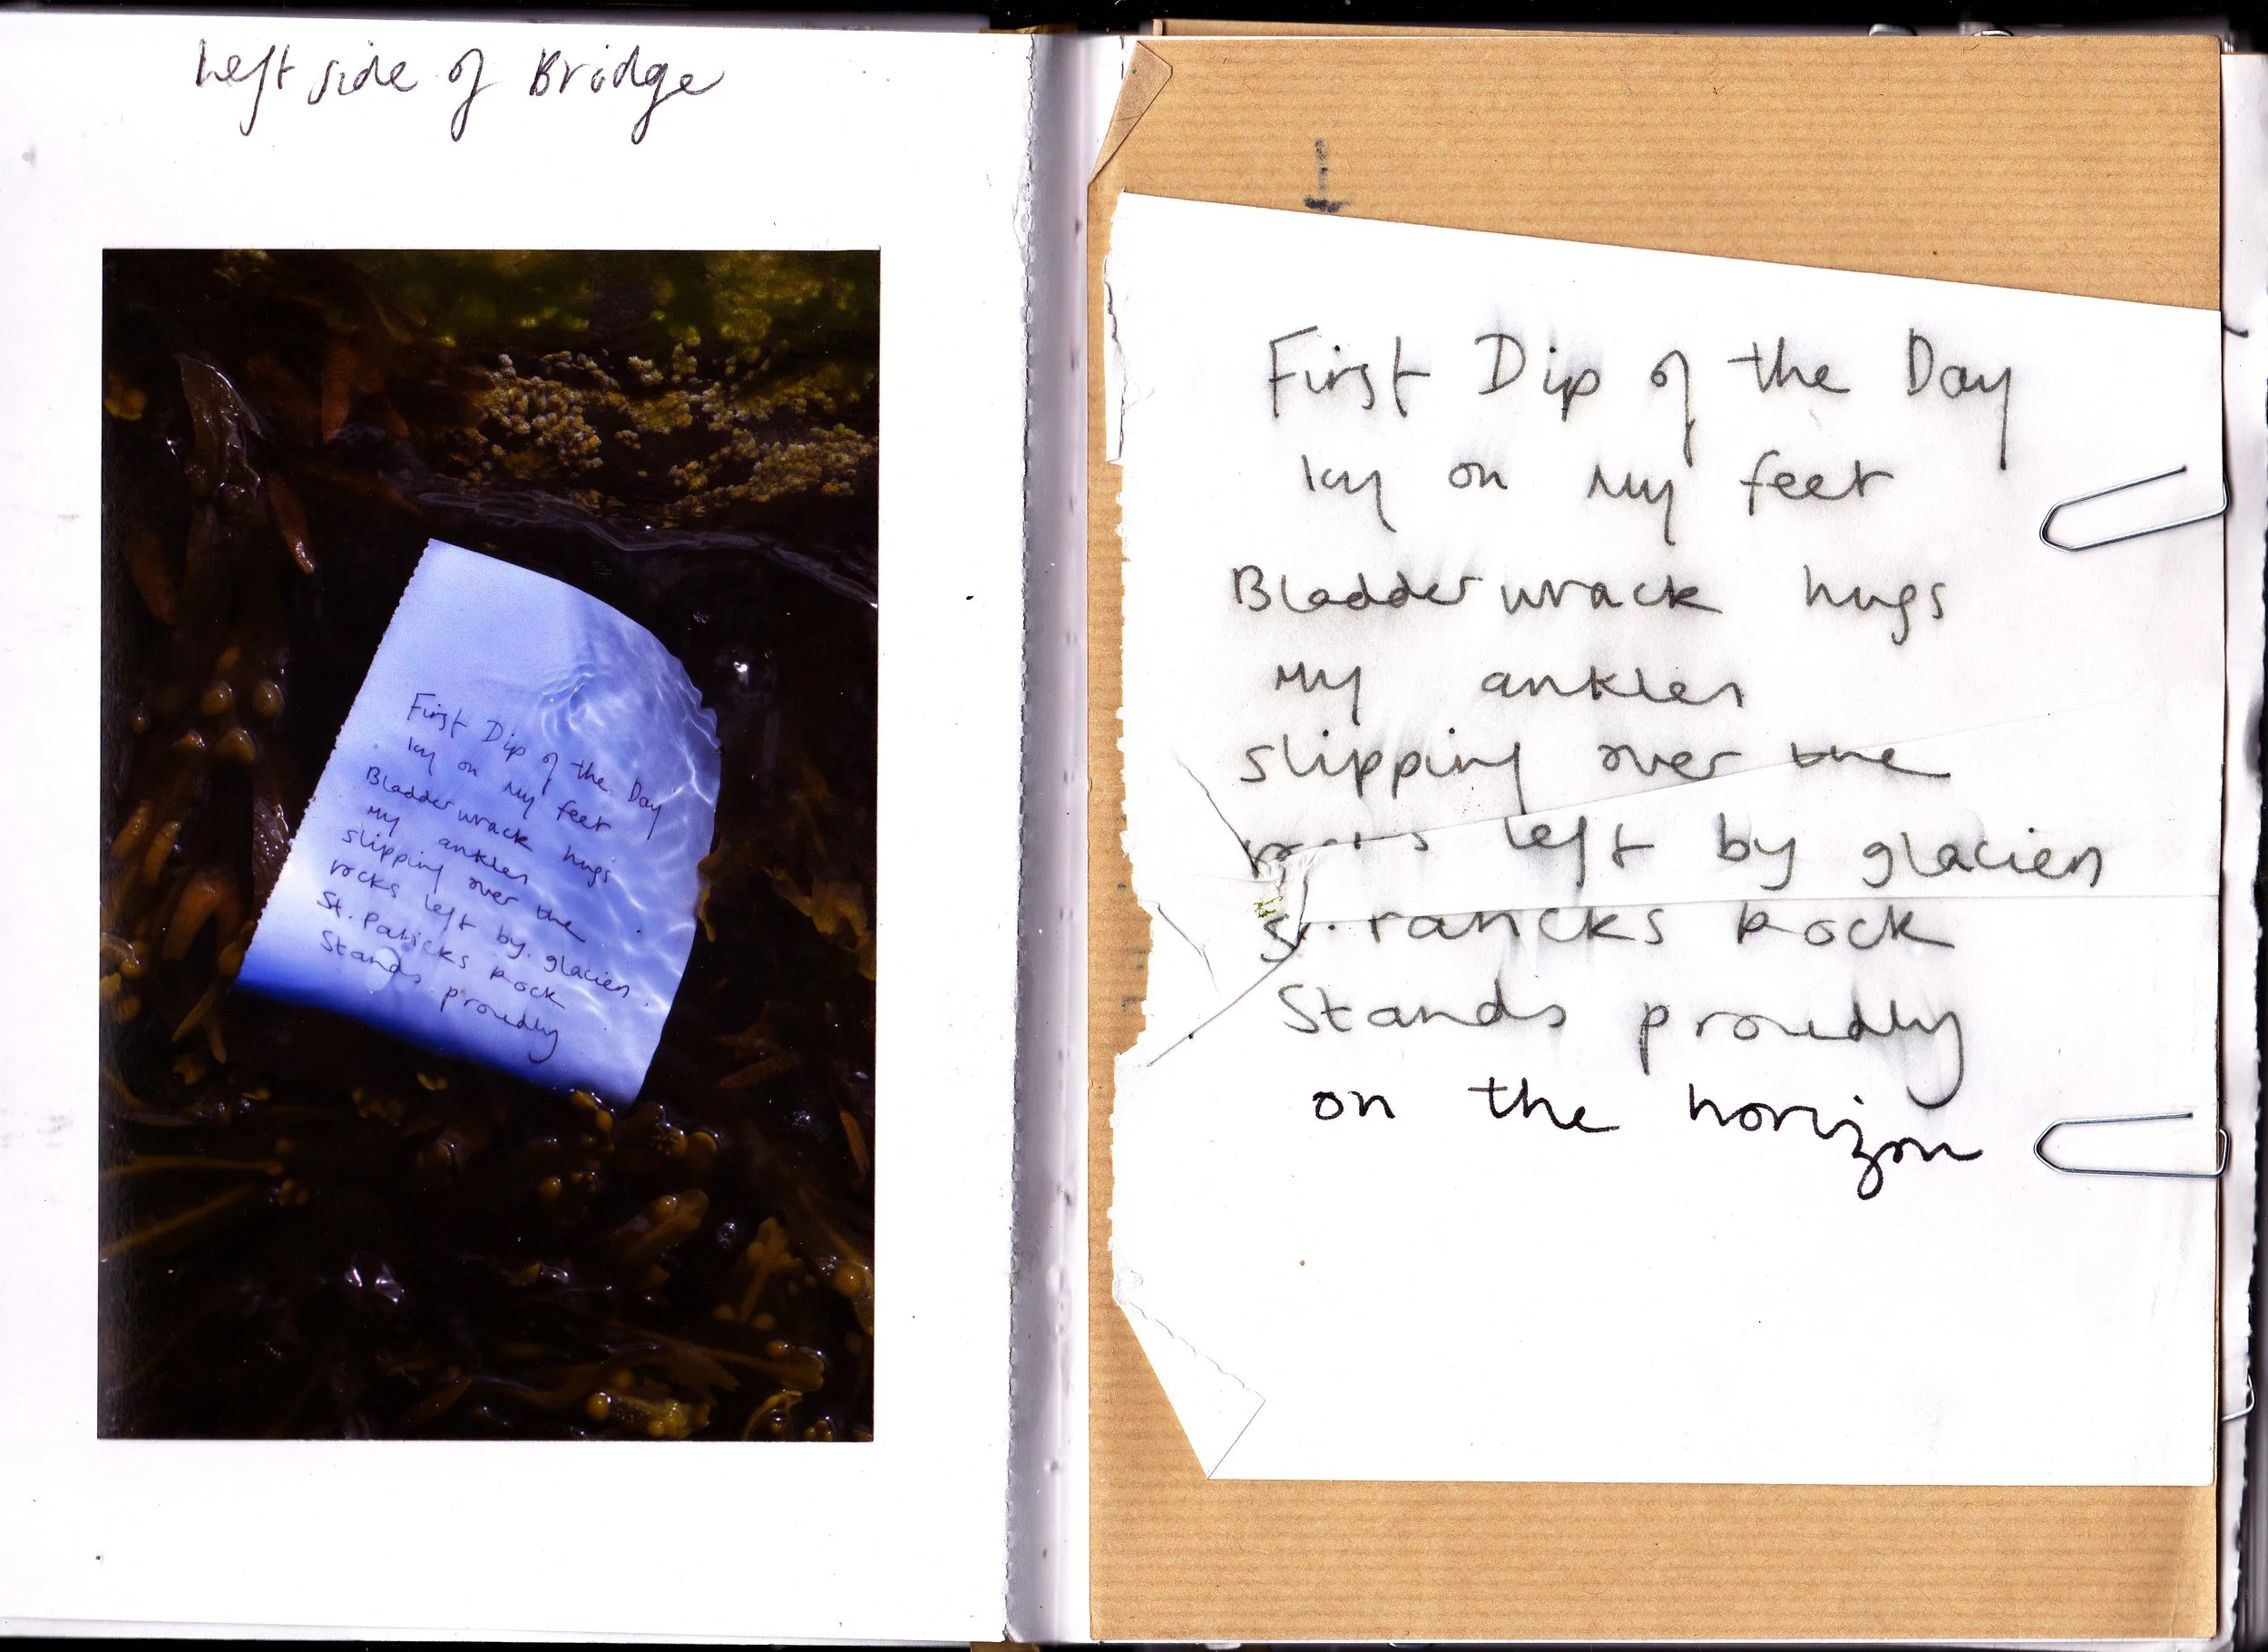 Left side of Bridge
First Dip of the Day
Icy on My feet
Bladder wrack hugs
My ankles
slipping over the
rocks left by glaciers
St. Patricks Rock
Stands proudly
First Dip of the Day
Icy on My feet
Bladder wrack hugs
My ankles
slipping over the
rocks left by glaciers
St. Patricks Rock
Stands proudly
on the horizon